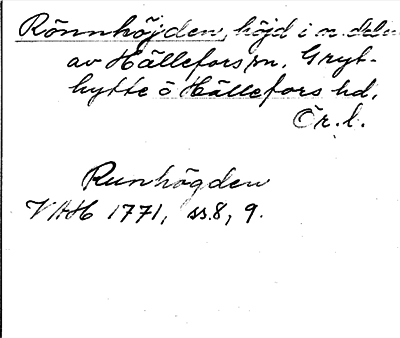 Rönnhöjden, höjd i n. delen
av Hällefors sn. Gryt-
hytte o Hällefors hd,
Ör. l.
Runhögden
VAH 1771, ss. 8, 9.